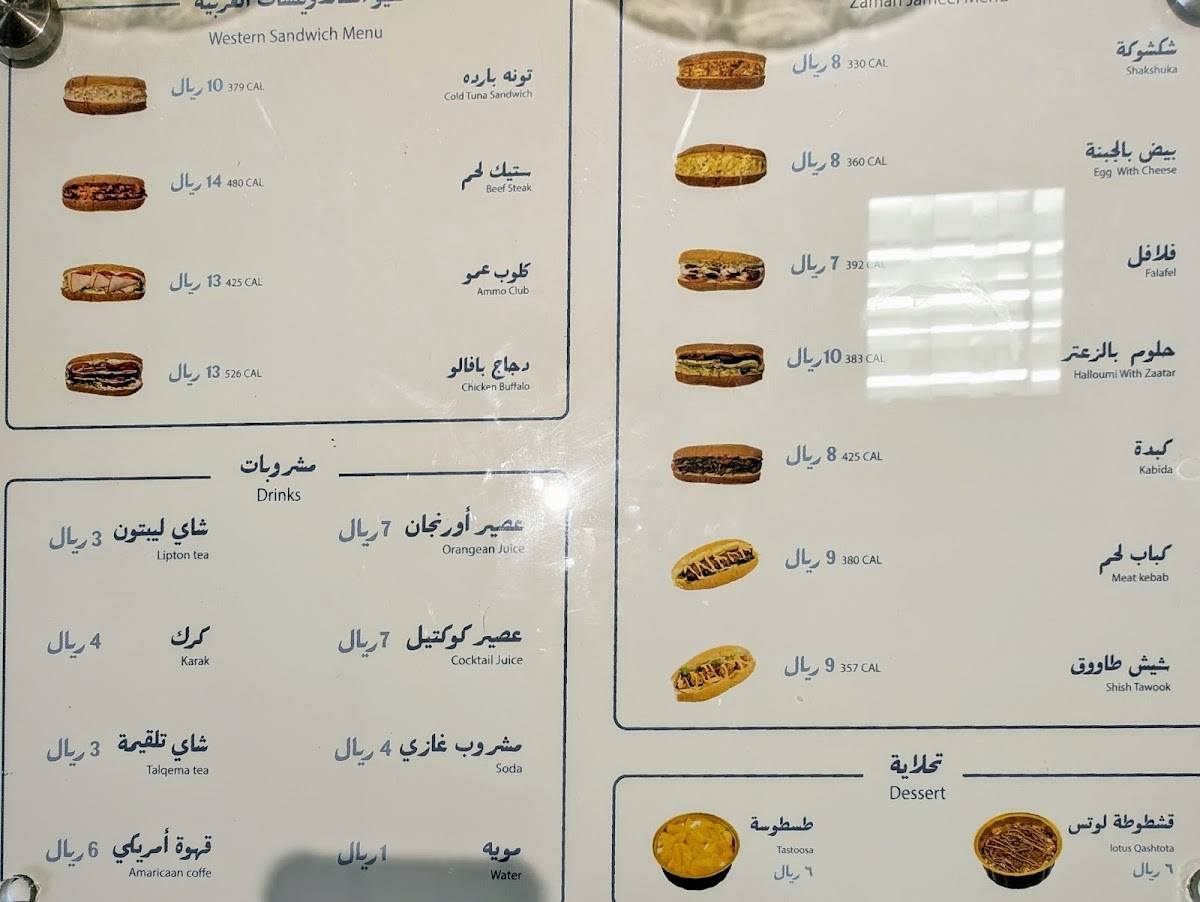 Western Sandwich Menu
تونه بارده
Cold Tuna Sandwich
10 ريال 379 CAL
ستيك لحم
Beef Steak
14 ريال 480 CAL
كلوب عمو
Ammo Club
13 ريال 425 CAL
دجاج بافالو
Chicken Buffalo
13 ريال 526 CAL
مشروبات
Drinks
عصير أورنجان 7 ريال
Orangean Juice
شاي ليبتون 3 ريال
Lipton tea
عصير كوكتيل 7 ريال
Cocktail Juice
كرك 4 ريال
Karak
مشروب غازي 4 ريال
Soda
شاي تلقيمة 3 ريال
Talqema tea
مويه 1 ريال
Water
قهوة أمريكي 6 ريال
Amaricaan coffe
Zaman Jameel Menu
شكشوكة
Shakshuka
8 ريال 330 CAL
بيض بالجبنة
Egg With Cheese
8 ريال 360 CAL
فلافل
Falafel
7 ريال 392 CAL
حلوم بالزعتر
Halloumi With Zaatar
10 ريال 383 CAL
كبدة
Kabida
8 ريال 425 CAL
كباب لحم
Meat kebab
9 ريال 380 CAL
شيش طاووق
Shish Tawook
9 ريال 357 CAL
تحلاية
Dessert
قشطوطة لوتس
lotus Qashtota
٦ ريال
طسطوسة
Tastoosa
٦ ريال